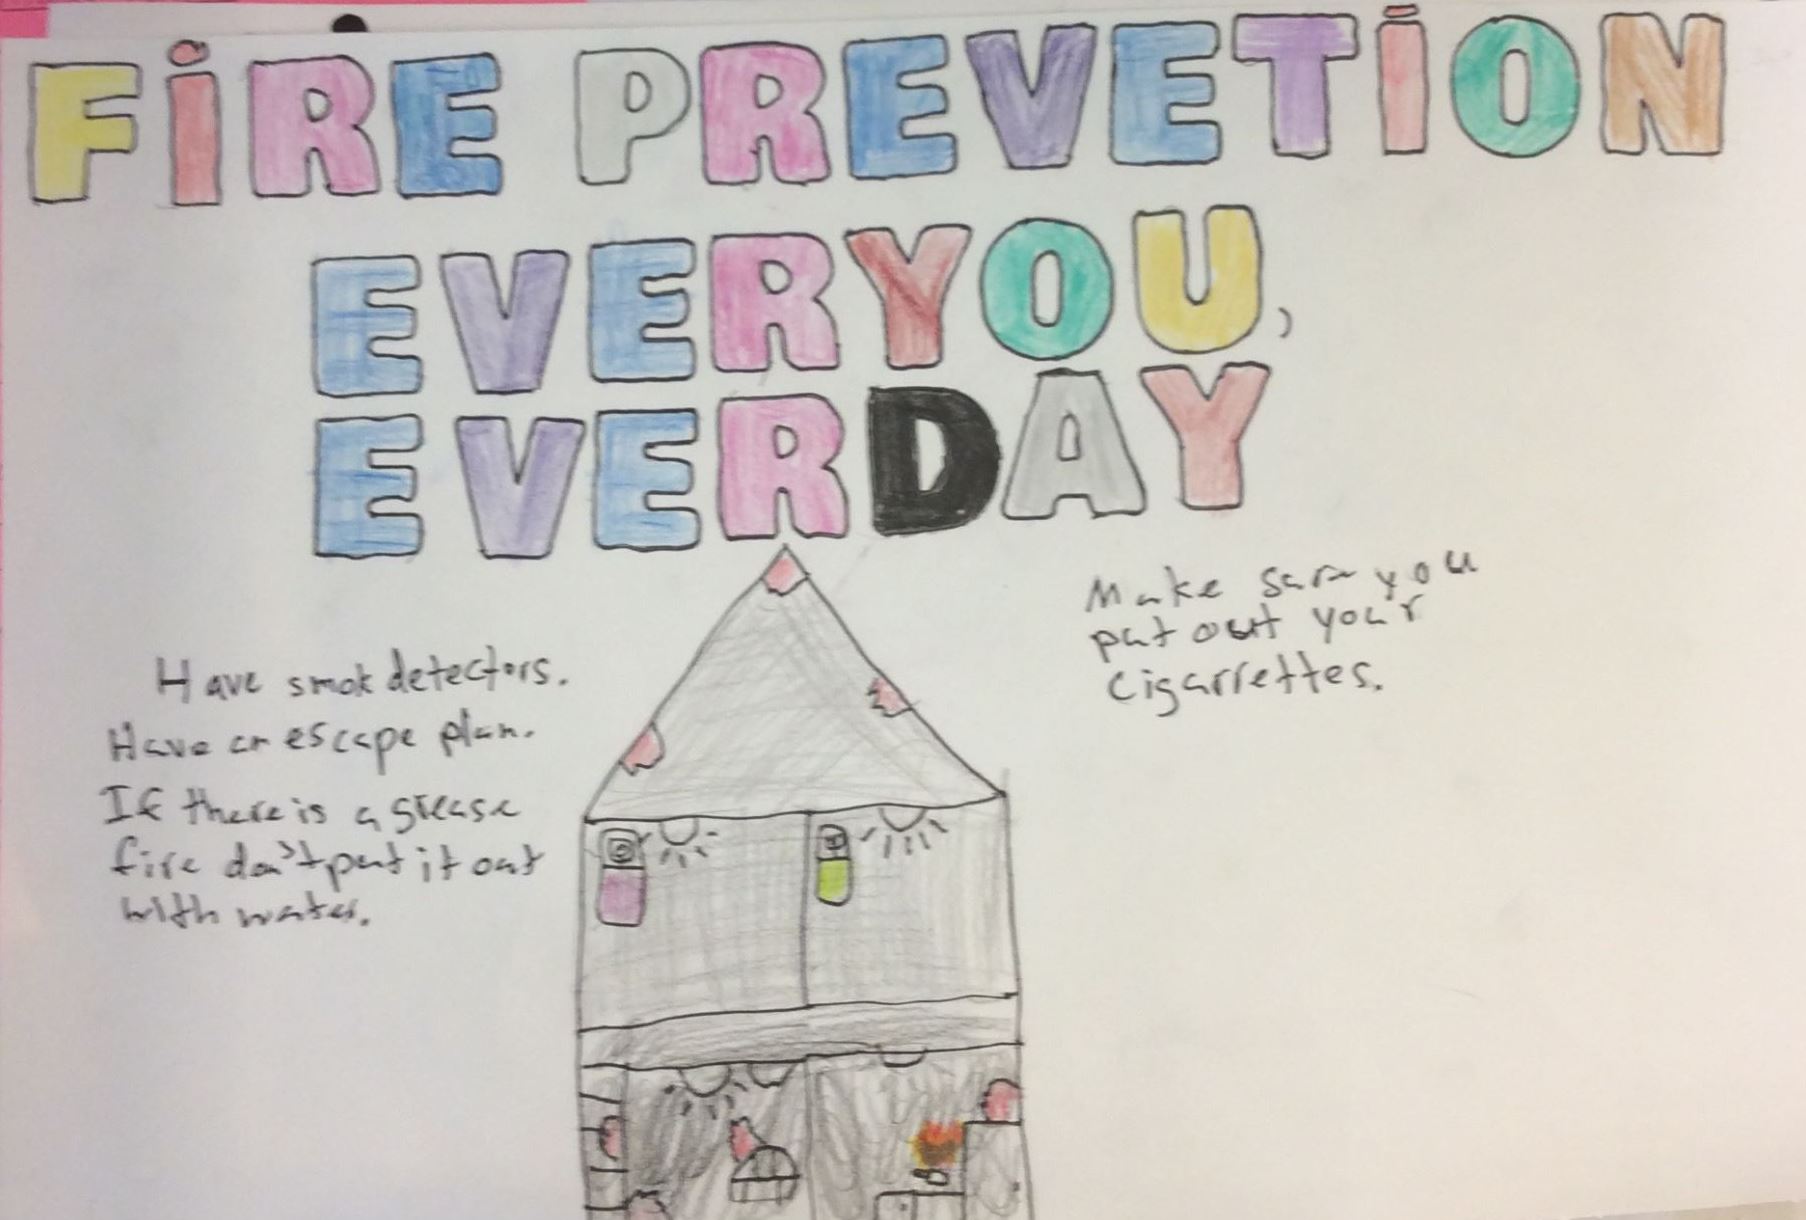 FiRE PREVETiON
EVERYOU,
EVERDAY
Have smok detectors.
Have an escape plan.
If there is a grease
fire don't put it out
with water.
Make sure you
put out your
cigarrettes.